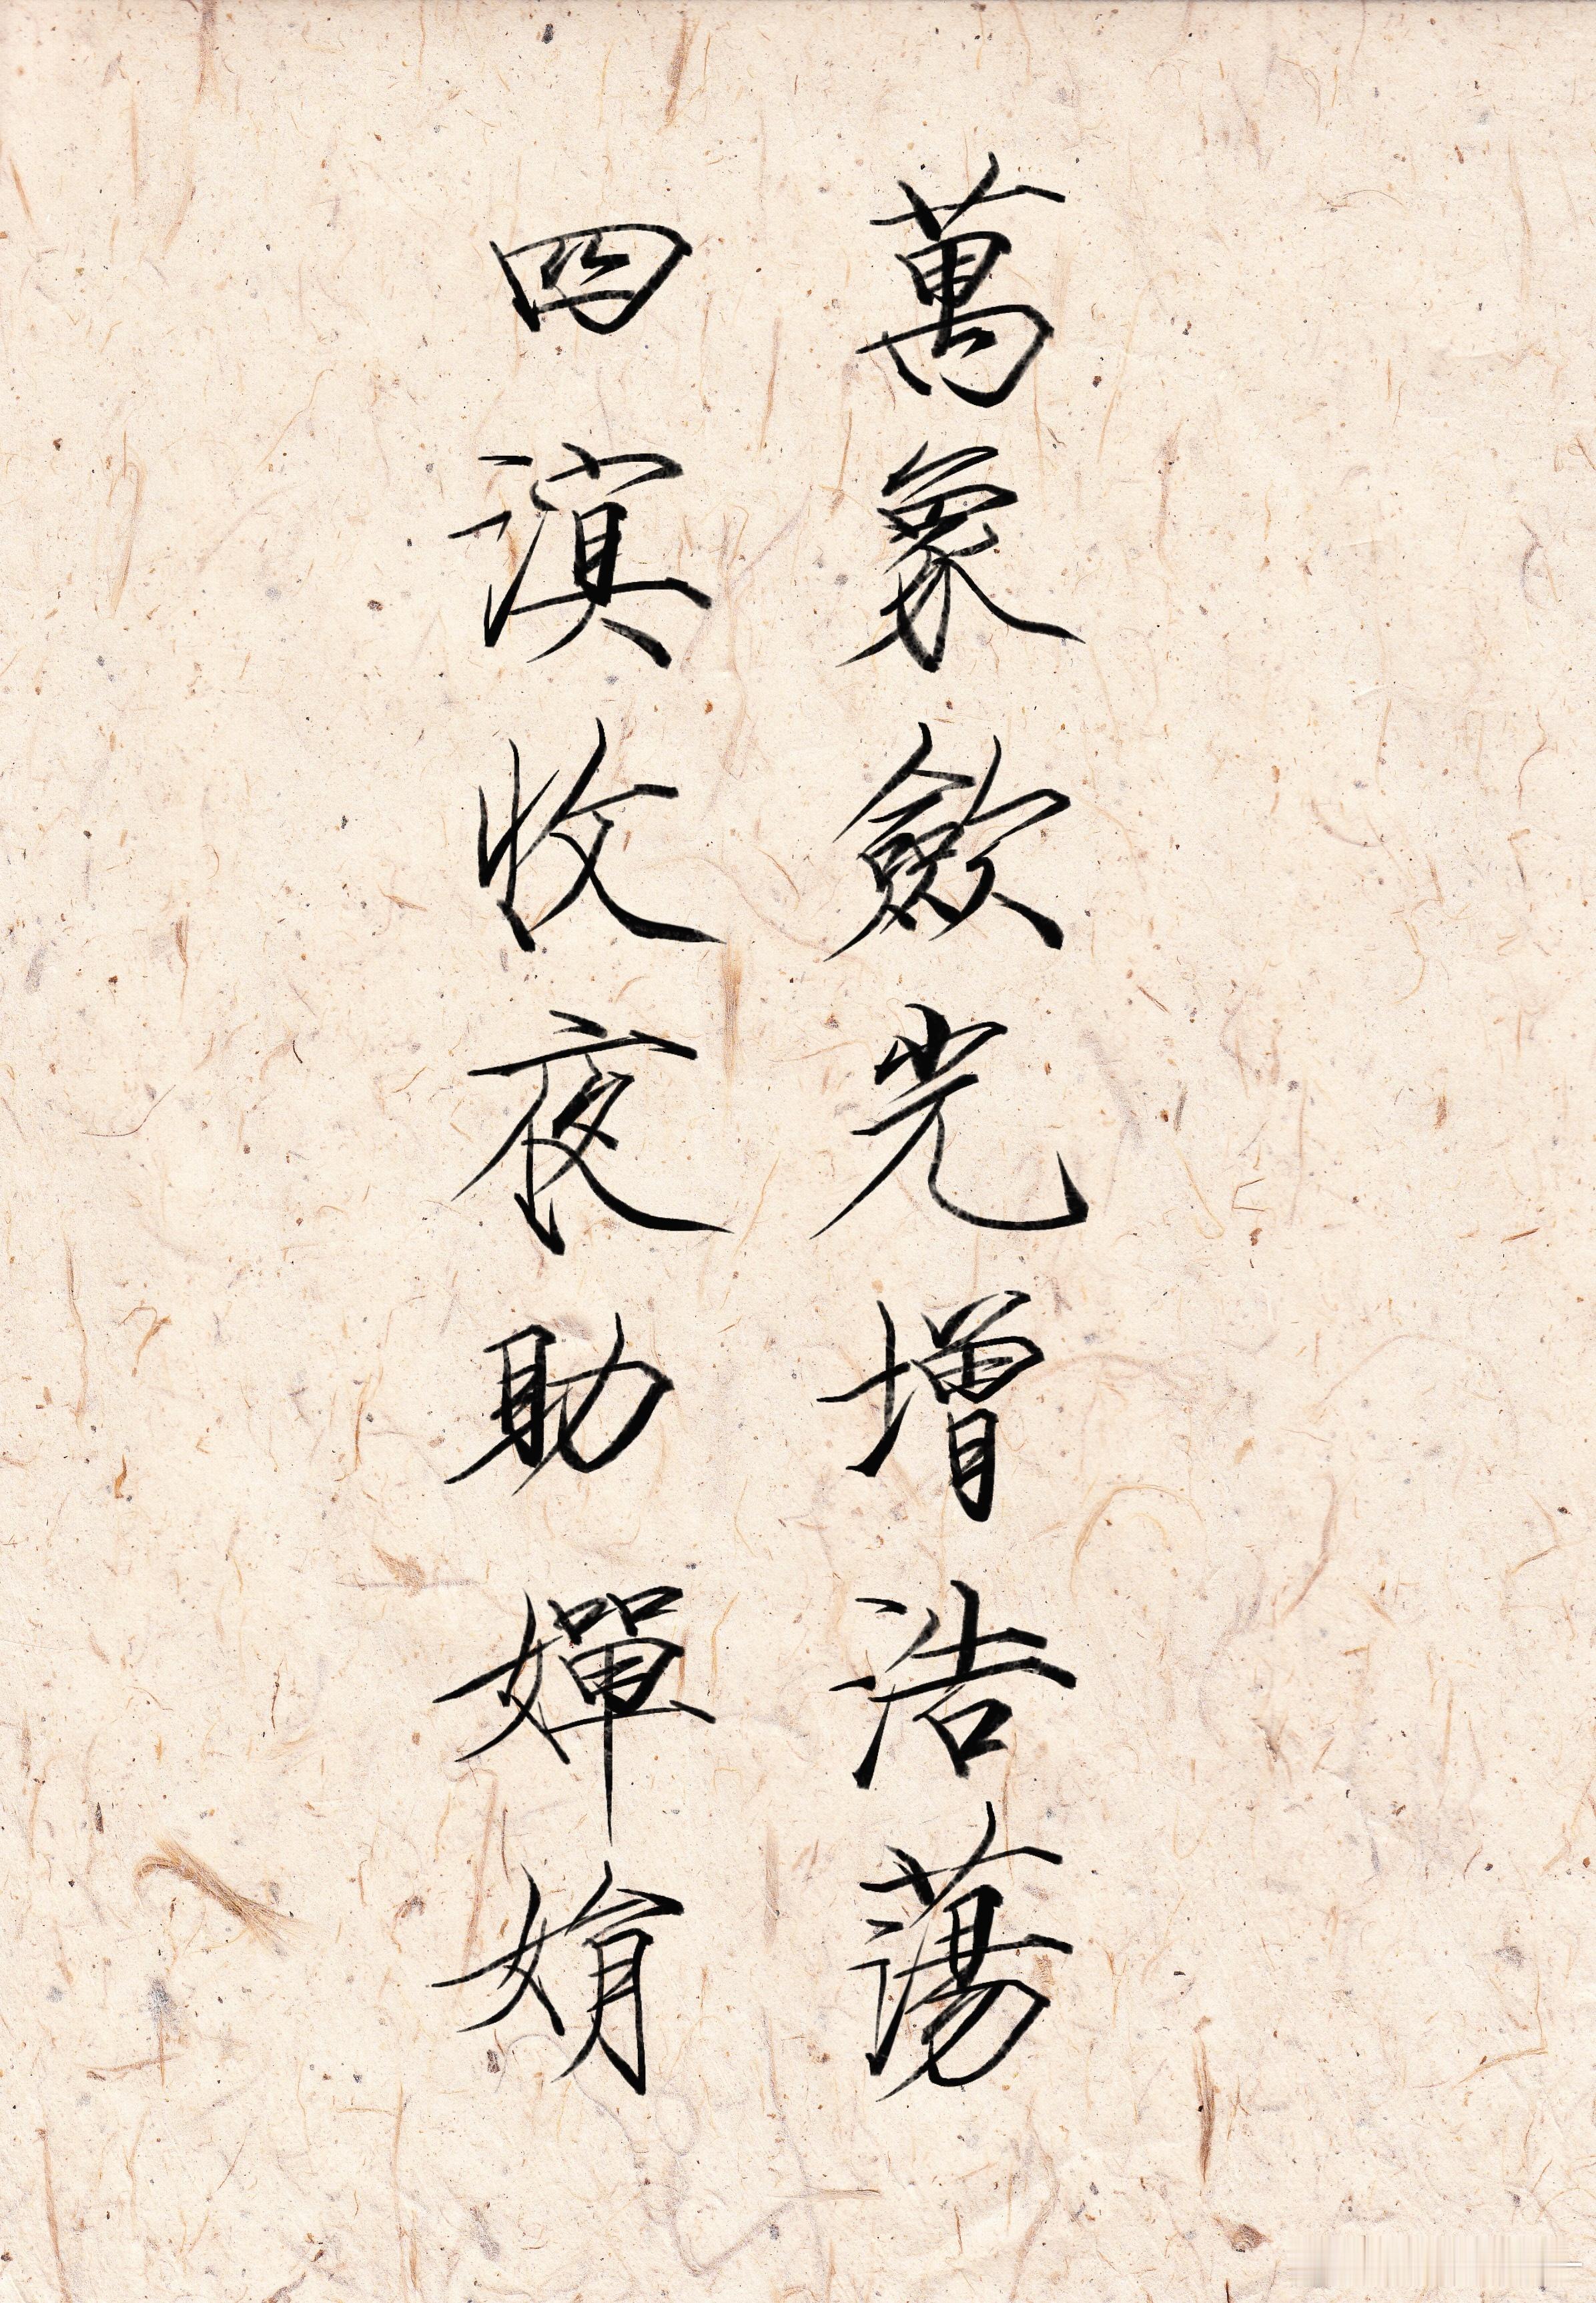 萬象歛光增浩蕩
四溟收夜助嬋娟